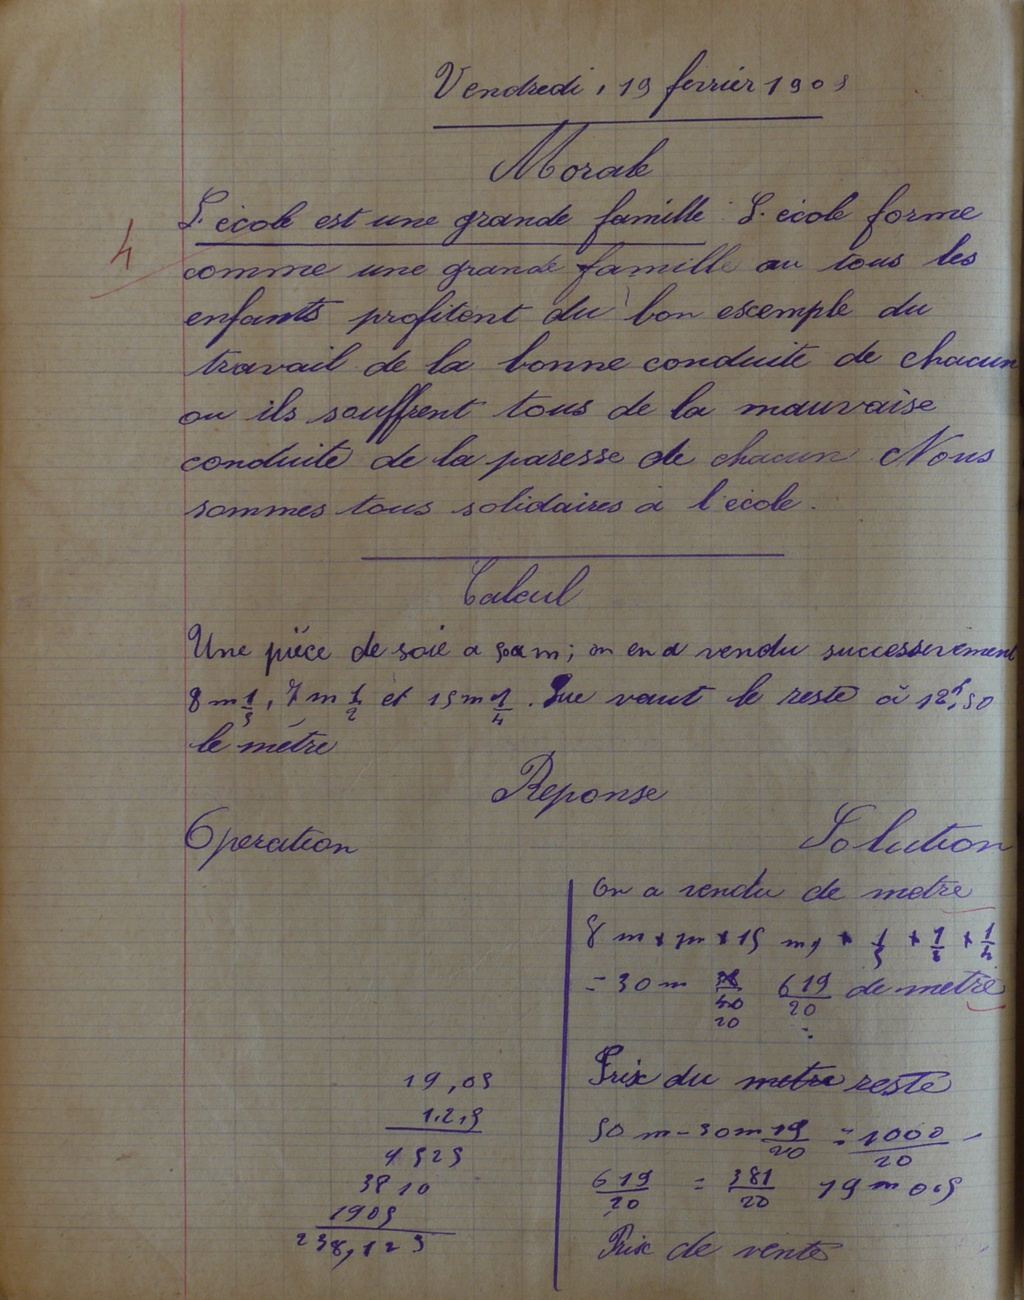 Vendredi, 19 fevrier 1909
Morale
L'école est une grande famille : L'école forme
4
comme une grande famille ou tous les
enfants profitent du bon escemple du
travail de la bonne conduite de chacun
ou ils souffrent tous de la mauvaise
conduite de la paresse de chacun. Nous
sommes tous solidaires à l'école.
Calcul
Une pièce de soie a 50m; on en a vendu successivement
8 m 1/5, 7 m 1/2 et 15 m 1/4. Que vaut le reste à 12f,50
le mètre
Reponse
Operation
Solution
On a vendu de metre
8 m + 7m + 15 m, + 1/5 + 1/2 + 1/4
= 30 m 619/20 de metre
Prix du metre reste
50 m - 30m 19/20 = 1000/20 -
619/20 = 381/20 19 m 05
Prix de vente
19,05
12,5
9525
3810
1905
238,125